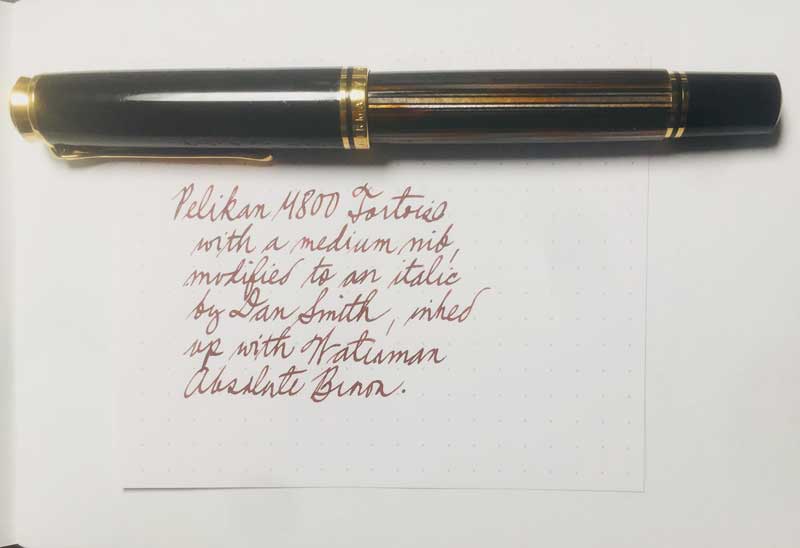 Pelikan M800 Tortoise
with a medium nib,
modified to an italic
by Dan Smith, inked
up with Waterman
Absolute Brown.